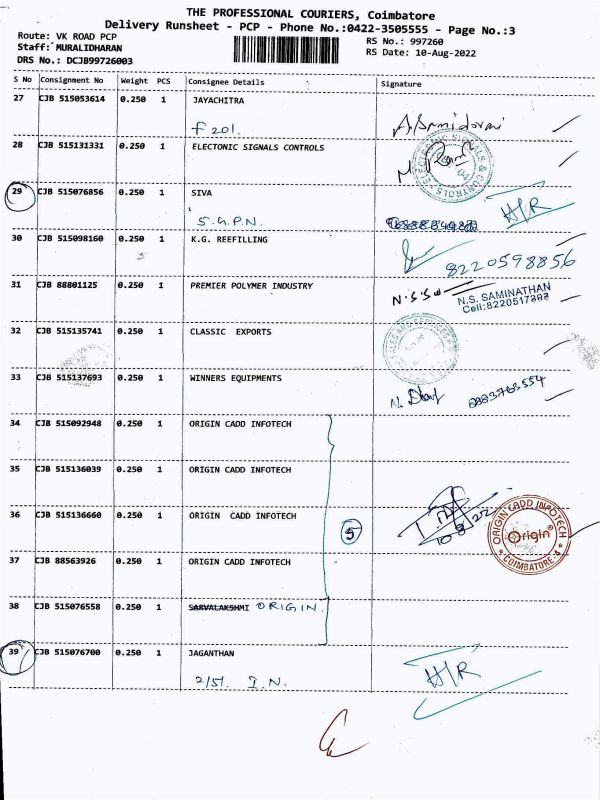 THE PROFESSIONAL COURIERS, Coimbatore
Delivery Runsheet - PCP - Phone No.:0422-3505555 - Page No.:3
Route: VK ROAD PCP
RS No.: 997260
Staff: MURALIDHARAN
RS Date: 10-Aug-2022
DRS No.: DCJB99726003
S No Consignment No Weight PCS Consignee Details Signature
27 CJB 515053614 0.250 1 JAYACHITRA
f 201.
28 CJB 515131331 0.250 1 ELECTONIC SIGNALS CONTROLS
29 CJB 515076856 0.250 1 SIVA
S.G.P.N. H/R
30 CJB 515098160 0.250 1 K.G. REEFILLING
8220598856
31 CJB 88801125 0.250 1 PREMIER POLYMER INDUSTRY
N.S. SAMINATHAN
32 CJB 515135741 0.250 1 CLASSIC EXPORTS
33 CJB 515137693 0.250 1 WINNERS EQUIPMENTS
34 CJB 515092948 0.250 1 ORIGIN CADD INFOTECH
35 CJB 515136039 0.250 1 ORIGIN CADD INFOTECH
36 CJB 515136660 0.250 1 ORIGIN CADD INFOTECH
5
ORIGIN CADD INFOTECH
Origin
COIMBATORE-4
37 CJB 88563926 0.250 1 ORIGIN CADD INFOTECH
38 CJB 515076558 0.250 1 SARVALAKSHMI ORIGIN.
39 CJB 515076700 0.250 1 JAGANTHAN
2/51. I.N. H/R